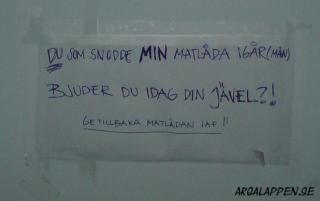 DU SOM SNODDE MIN MATLÅDA IGÅR (MÅN)
BJUDER DU IDAG DIN JÄVEL?!
GE TILLBAKA MATLÅDAN IAF!!
ARGALAPPEN.SE